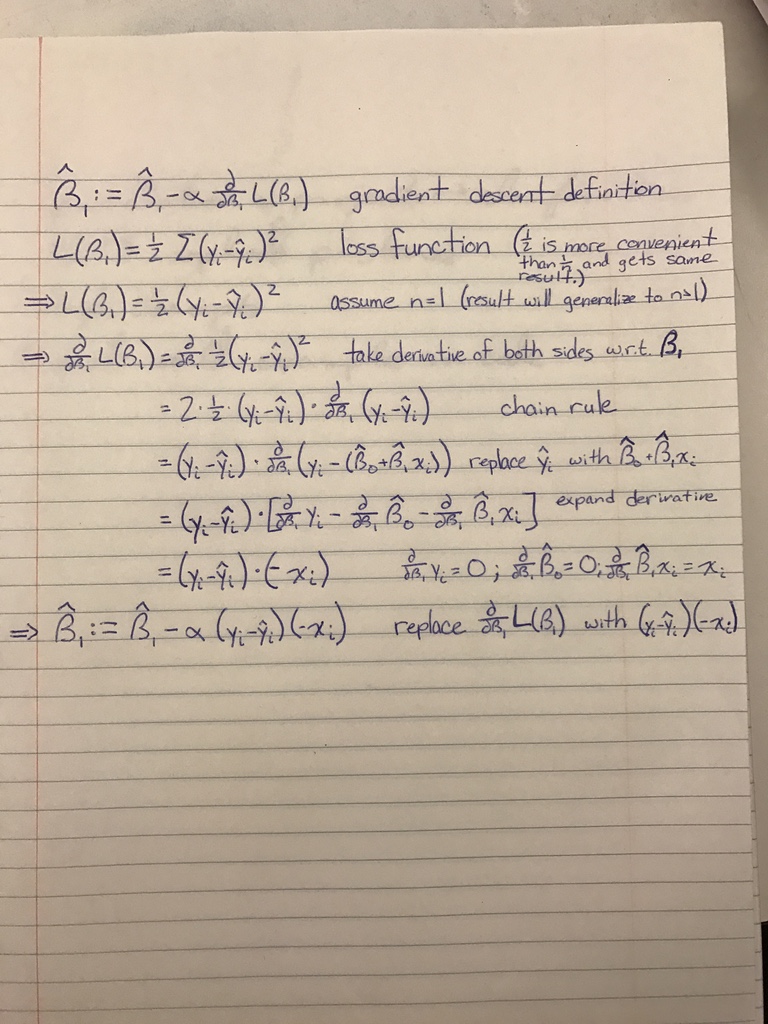 β̂₁ := β̂₁ - α ∂/∂β₁ L(β₁) gradient descent definition
L(β₁) = 1/2 Σ(yᵢ-ŷᵢ)² loss function (1/2 is more convenient
than 1/n and gets same
result.)
⇒ L(β₁) = 1/2 (yᵢ-ŷᵢ)² assume n=1 (result will generalize to n>1)
⇒ ∂/∂β₁ L(β₁) = ∂/∂β₁ 1/2 (yᵢ-ŷᵢ)² take derivative of both sides w.r.t. β₁
= 2 · 1/2 · (yᵢ-ŷᵢ) · ∂/∂β₁ (yᵢ-ŷᵢ) chain rule
= (yᵢ-ŷᵢ) · ∂/∂β₁ (yᵢ - (β̂₀+β̂₁xᵢ)) replace ŷᵢ with β̂₀+β̂₁xᵢ
= (yᵢ-ŷᵢ) · [∂/∂β₁ yᵢ - ∂/∂β₁ β̂₀ - ∂/∂β₁ β̂₁xᵢ] expand derivative
= (yᵢ-ŷᵢ) · (-xᵢ) ∂/∂β₁ yᵢ = 0; ∂/∂β₁ β̂₀ = 0; ∂/∂β₁ β̂₁xᵢ = xᵢ
⇒ β̂₁ := β̂₁ - α (yᵢ-ŷᵢ)(-xᵢ) replace ∂/∂β₁ L(β₁) with (yᵢ-ŷᵢ)(-xᵢ)